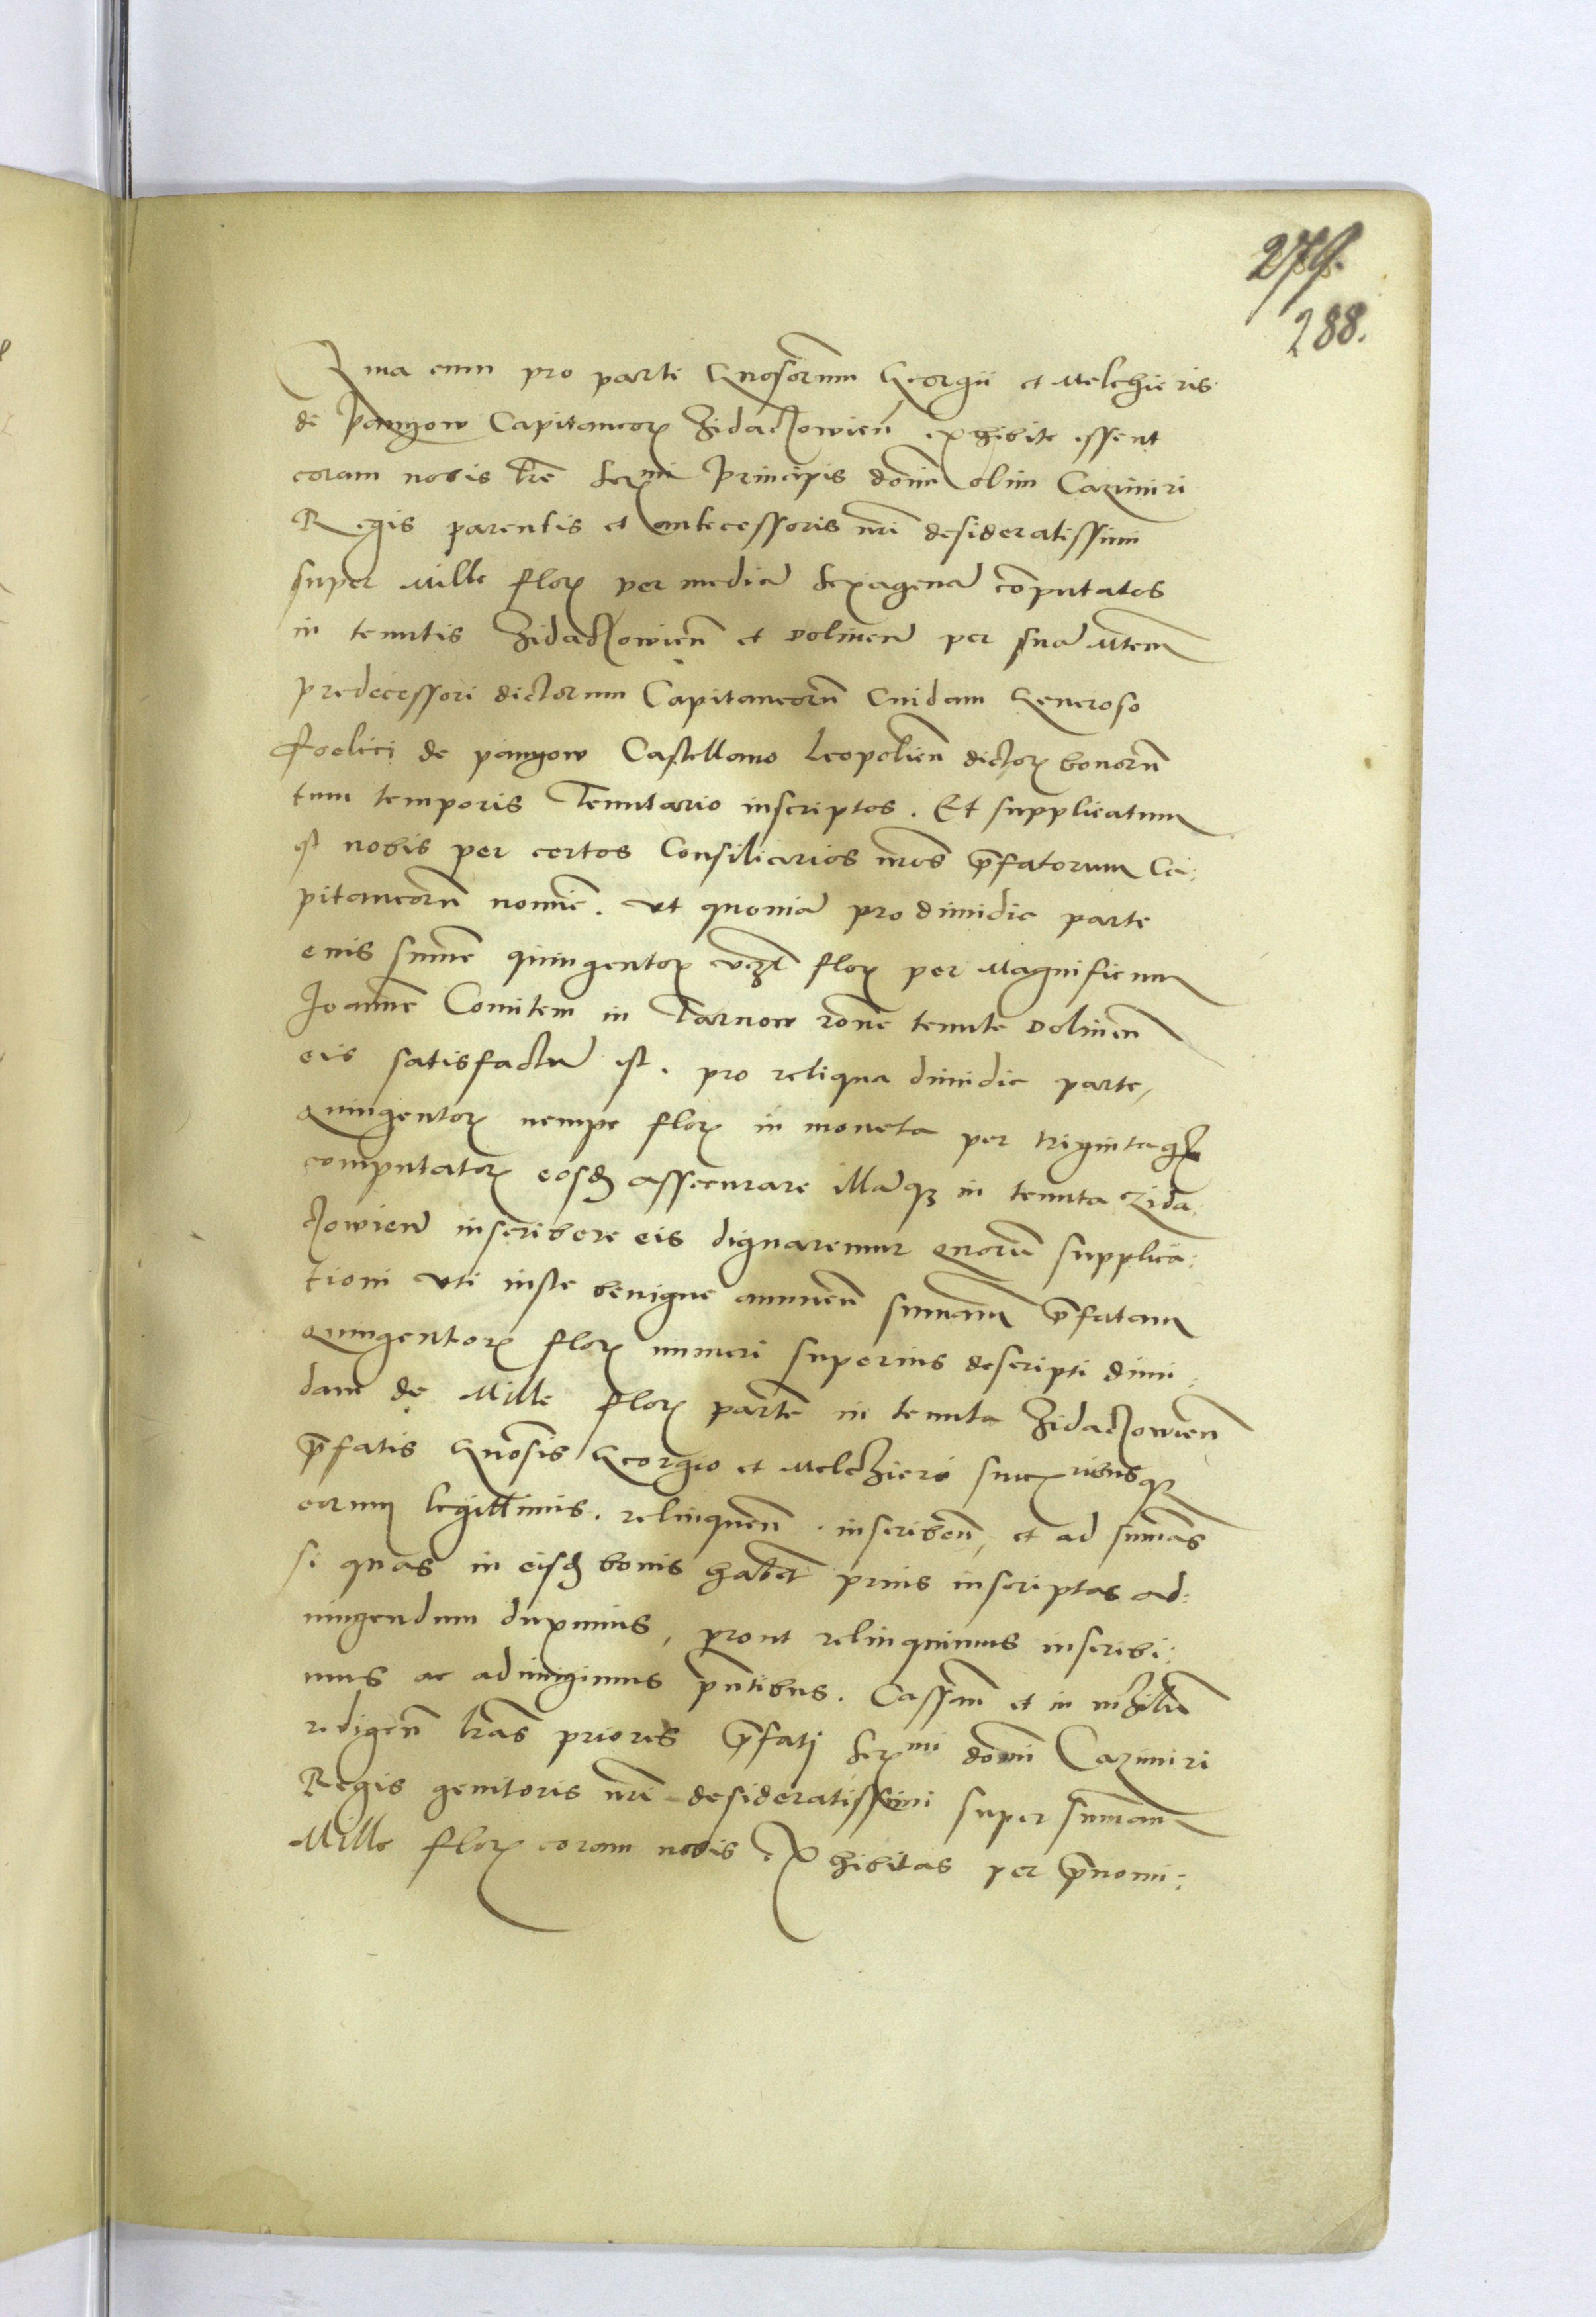 279.
288.
Qma cum pro parte Gnosorum Georgii et Melchioris
de Panyow Capitaneor Zidaczowien exhibite essent
coram nobis lre Sermi Principis domi olim Cazimiri
Regis parentis et antecessoris nri desideratissimi
super Mille flor per media sexagena coputatos
in tenutis Zidaczowien et Dolinen per sua Mtem
predecessori dictorum Capitaneoru cuidam Generoso
Foelici de panyow Castellano Leopolien dictor bonoru
tum temporis Tenutario inscriptos. Et supplicatum
est nobis per certos Consiliarios nros prefatorum Ca:
pitaneoru nomine. ut quonia pro dimidia parte
euis sume quingentor vezt flor per Magnificum
Joanne Comitem in Tarnow rone tenute Dolinen
eis satisfactu est. pro reliqua dimidia parte,
quingentor nempe flor in moneta per triginta gr
computator eosd assecurare illaqz in tenuta Zida
czowien inscribere eis dignaremur quoru supplica:
tioni uti iuste benigne annuen sumam prefatam
quingentor flor numeri superius descripti dimi:
dam de Mille flor parte in tenuta Zidaczowien
prefatis Gnosis Georgio et Melchiori succribusqz
eorum legittimis. relinquen. inscriben, et ad sumas
si quas in eisd bonis habet prius inscriptas ad:
iungendum duximus, prout relinquimus inscribi:
mus ac adiungimus pntibus. Cassan et in nihilu
redigen lras priores prefati Sermi domi Cazimiri
Regis genitoris nri desideratissimi super sumam
Mille flor coram nobis exhibitas per prenomi: